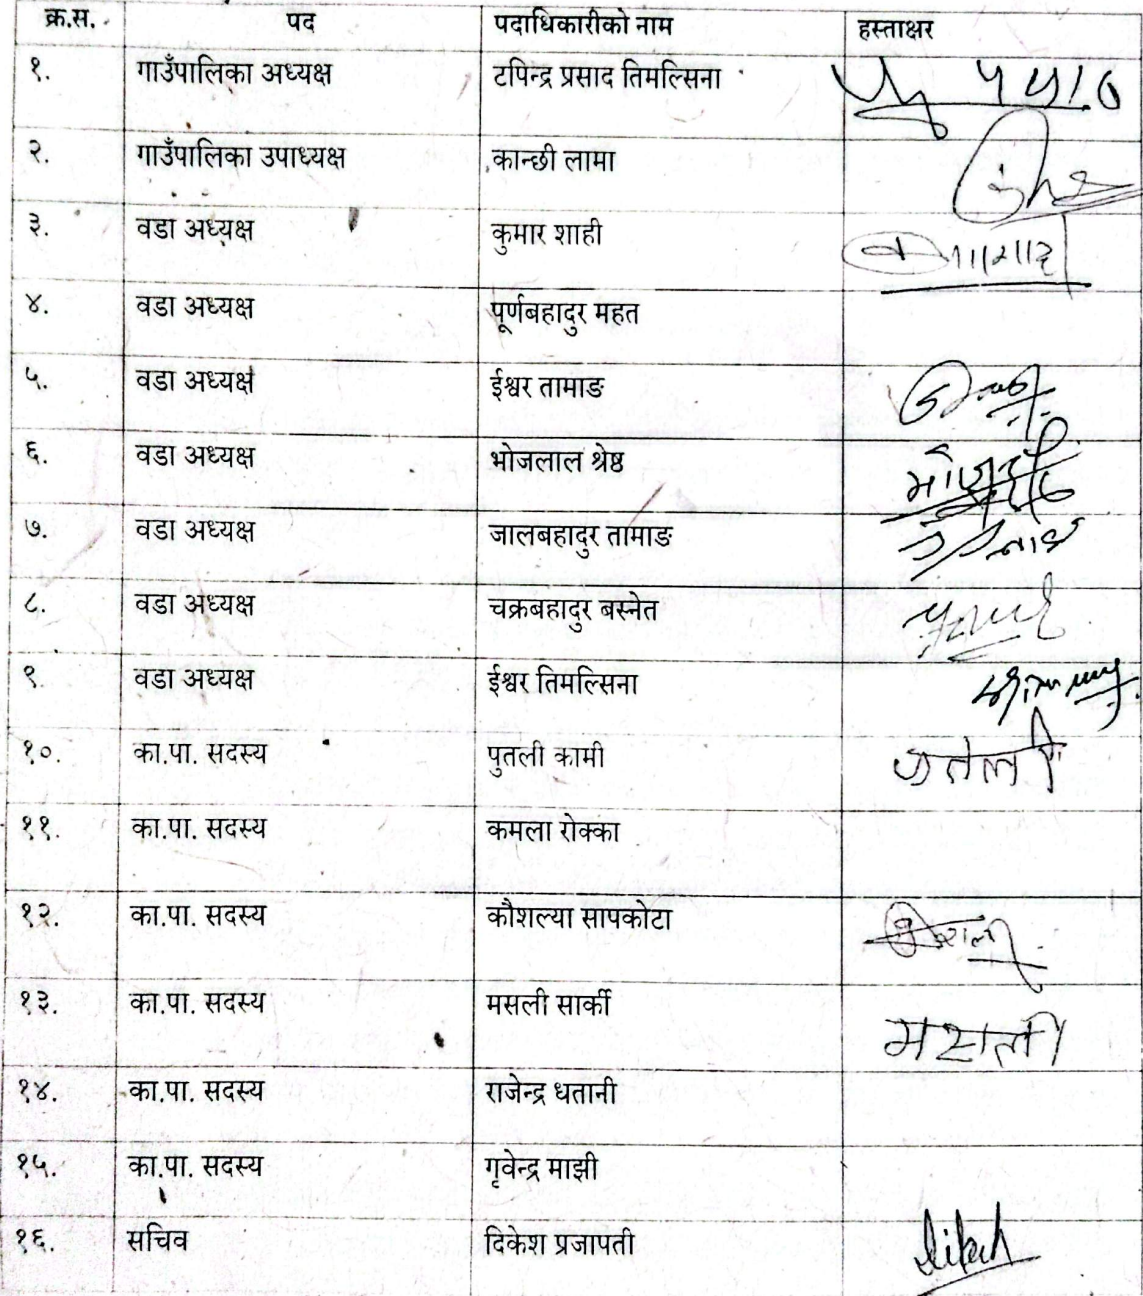 क्र.स. पद पदाधिकारीको नाम हस्ताक्षर
१. गाउँपालिका अध्यक्ष टपिन्द्र प्रसाद तिमल्सिना
२. गाउँपालिका उपाध्यक्ष कान्छी लामा
३. वडा अध्यक्ष कुमार शाही
४. वडा अध्यक्ष पूर्णबहादुर महत
५. वडा अध्यक्ष ईश्वर तामाङ
६. वडा अध्यक्ष भोजलाल श्रेष्ठ
७. वडा अध्यक्ष जालबहादुर तामाङ
८. वडा अध्यक्ष चक्रबहादुर बस्नेत
९ वडा अध्यक्ष ईश्वर तिमल्सिना
१०. का.पा. सदस्य पुतली कामी
११. का.पा. सदस्य कमला रोक्का
१२. का.पा. सदस्य कौशल्या सापकोटा
१३. का.पा. सदस्य मसली सार्की मसली
१४. का.पा. सदस्य राजेन्द्र धतानी
१५. का.पा. सदस्य गृवेन्द्र माझी
१६. सचिव दिकेश प्रजापती